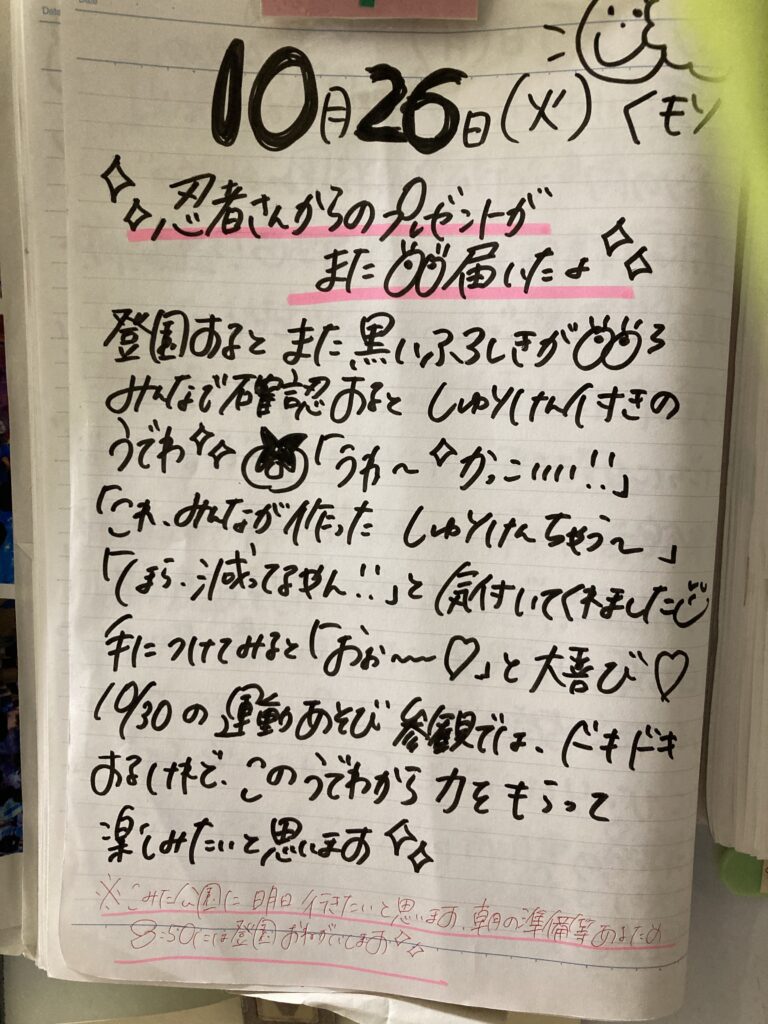 10月26日(火) くもり
忍者さんからのプレゼントが
また届いたよ
登園するとまた黒いふろしきが
みんなで確認すると しゅりけん付きの
うでわ 「うわ〜かっこいいい!!」
「これ、みんなが作った しゅりけんちゃう〜」
「ほら、減ってるやん!!」と気付いてくれました
手につけてみると「おぉ〜〜♡」と大喜び♡
10/30の運動あそび参観では、ドキドキ
するけれど、このうでわから力をもらって
楽しみたいと思います
※こみた公園に明日行きたいと思います。朝の準備等あるため
8:50には登園おねがいします